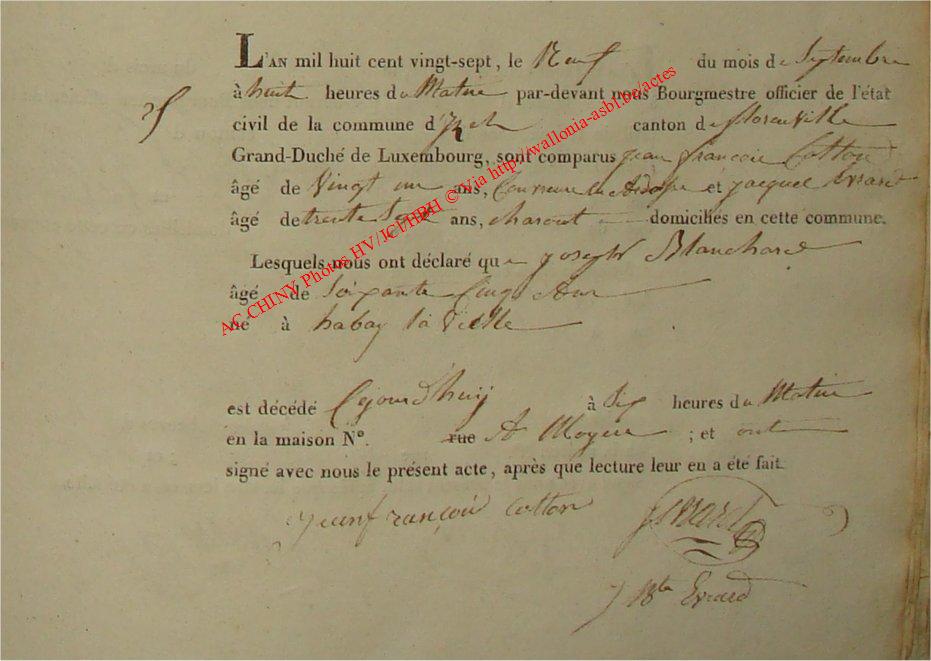 L'AN mil huit cent vingt-sept, le Neuf du mois de Septembre
à huit heures du Matin par-devant nous Bourgmestre officier de l'état
civil de la commune d'Izel canton de florenville
Grand-Duché de Luxembourg, sont comparus jean françois Cotton
âgé de Vingt un ans, et jacque Evrard
âgé de trente Sept ans, domiciliés en cette commune.
Lesquels nous ont déclaré que joseph Blanchard
âgé de Soixante Cinq Ans
né à habay la Vielle
est décédé Cejourd'huy à Six heures du Matin
en la maison N°. rue A Moyen ; et ont
signé avec nous le présent acte, après que lecture leur en a été fait.
jeanfrançois cotton
J Bte Evrard
AC CHINY Photos HV/JCl/HBH © Via http://wallonia-asbl.be/actes